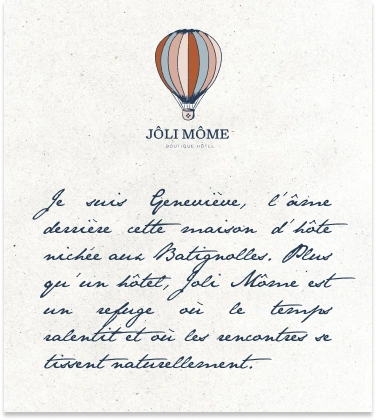 JÔLI MÔME
BOUTIQUE HÔTEL
Je suis Geneviève, l'âme
derrière cette maison d'hôte
nichée aux Batignolles. Plus
qu'un hôtel, Joli Môme est
un refuge où le temps
ralentit et où les rencontres se
tissent naturellement.